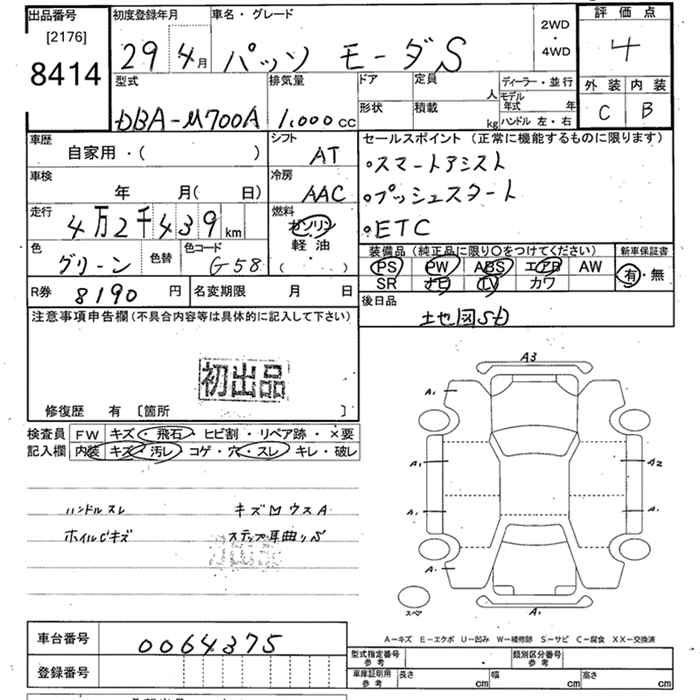 出品番号 初度登録年月 車名・グレード 2WD・4WD 評価点
[2176]
8414 29 4月 パッソ モーダS 4
型式 排気量 ドア 定員 人 ディーラー・並行 外装 内装
DBA-M700A 1,000cc 形状 積載 kg モデル年式 年 ハンドル 左・右 C B
車歴 シフト セールスポイント (正常に機能するものに限ります)
自家用・( ) AT ・スマートアシスト
車検 冷房 ・プッシュスタート
年 月( 日) AAC ・ETC
走行 燃料
4万2千439km ガソリン
軽油
( ・ )
色 色替 色コード
グリーン G58
装備品 (純正品に限り〇をつけてください) 新車保証書
PS PW ABS エアB AW 有・無
SR ナビ TV カワ
R券 8190円 名変期限 月 日 後日品
地図SD
注意事項申告欄(不具合内容等は具体的に記入して下さい)
初出品
修復歴 有 [箇所 ]
検査員 FW キズ・飛石・ヒビ割・リペア跡・×要
記入欄 内装 キズ・汚レ コゲ・穴・スレ・キレ・破レ
ハンドルスレ キズMウスA
ホイルCキズ ステップ耳曲りS
A3
A1
A1 A2
A1 A1
A1
スペア A1
車台番号 0064375
登録番号
A-キズ E-エクボ U-凹み W-補修跡 S-サビ C-腐食 XX-交換済
型式指定番号 参考 類別区分番号 参考
車庫証明用 参考 長さ cm 幅 cm 高さ cm